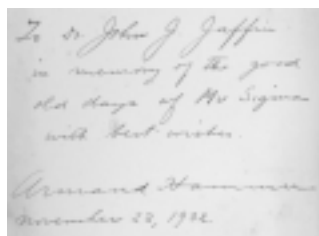 To Dr John J. Jaffin
in memory of the good
old days of Mu Sigma
with best wishes.
Armand Hammer
November 23, 1932